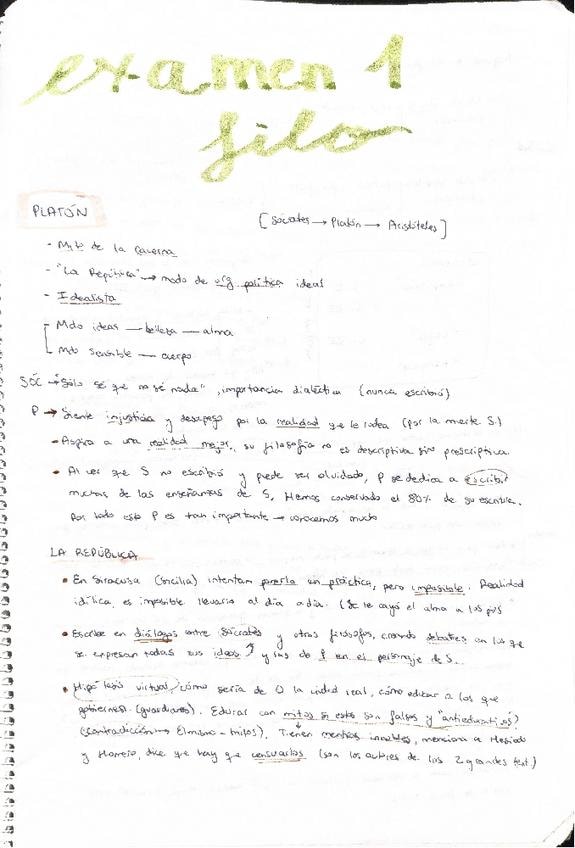 examen 1
filo
PLATÓN
[Sócrates → Platón → Aristóteles]
- Mito de la Caverna
- "La República" → modo de org política ideal
- Idealista
Mdo ideas — belleza — alma
Mdo Sensible — cuerpo
SÓC → "Sólo sé que no sé nada", importancia dialéctica (nunca escribió)
P → Siente injusticia y desapego por la realidad que le rodea (por la muerte S.)
Aspira a una realidad mejor, su filosofía no es descriptiva sino prescriptiva.
• Al ver que S no escribió y puede ser olvidado, P se dedica a escribir
muchas de las enseñanzas de S. Hemos conservado el 80% de su
Por todo esto P es tran importante → conocemos mucho
LA REPÚBLICA
• En Siracusa (Sicilia) intentam ponerla en práctica, pero imposible. Realidad
idílica, es imposible llevarlo al día a día. (Se le cayó el alma a los pies
• Escribe en diálogos entre Sócrates y otros filósofos, creando debates en los que
se expresan todas sus ideas y las de P en el personaje de S...
• Hipótesis virtual, cómo sería de 0 la ciudad real, cómo educar a los que
gobiernen (guardianes). Educar con mitos si estos son falsos y "antieducativos"
(contradicción → El mismo - mitos). Tienen mentiras innobles, menciona a Hesíodo
y Homero, dice que hay que censurarlos (son los autores de los 2 grandes text)